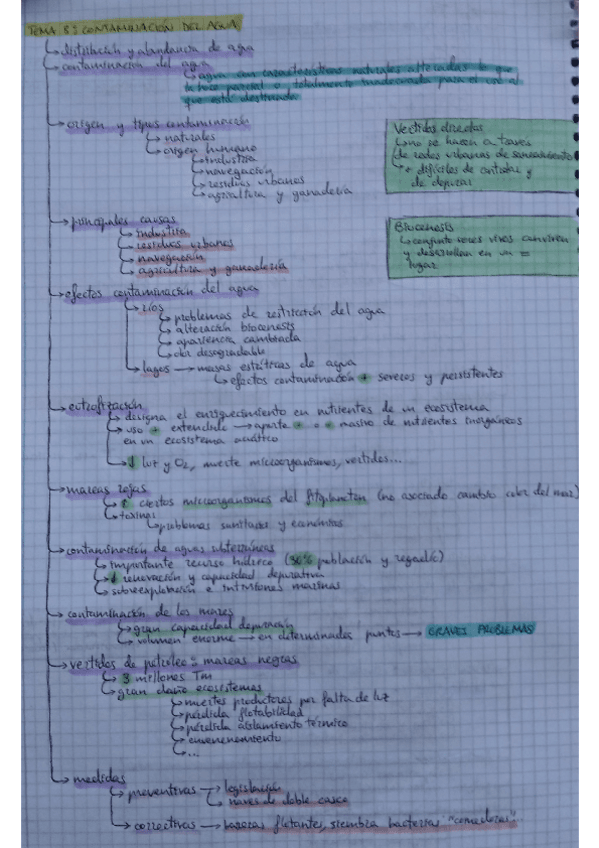 TEMA 8: CONTAMINACIÓN DEL AGUA
distribución y abundancia de agua
contaminación del agua
agua con características naturales alteradas lo que
la hace parcial o totalmente inadecuada para el uso al
que está destinada
origen y tipos contaminación
naturales
origen humano
industria
navegación
residuos urbanos
agricultura y ganadería
Vertidos directos
no se hacen a traves
de redes urbanas de saneamiento
+ difíciles de controlar y
de depurar
principales causas
industria
residuos urbanos
navegación
agricultura y ganadería
Biocenosis
conjunto seres vivos conviven
y desarrollan en un =
lugar
efectos contaminación del agua
ríos
problemas de restricción del agua
alteración biocenosis
apariencia cambiada
olor desagradable
lagos → masas estáticas de agua
efectos contaminación + severos y persistentes
eutrofización
designa el enriquecimiento en nutrientes de un ecosistema
uso + extendido → aporte + o - masivo de nutrientes inorgánicos
en un ecosistema acuático
↓ luz y O₂, muerte microorganismos, vertidos...
mareas rojas
↑ ciertos microorganismos del fitoplancton (no asociado cambio color del mar)
toxinas
problemas sanitarios y económicos
contaminación de aguas subterráneas
importante recurso hídrico (30% población y regadío)
↓ renovación y capacidad depurativa
sobreexplotación e intrusiones marinas
contaminación de los mares
gran capacidad depuración
volumen enorme → en determinados puntos → GRAVES PROBLEMAS
vertidos de petróleo: mareas negras
3 millones Tm
gran daño ecosistemas
muertes productores por falta de luz
pérdida flotabilidad
pérdida aislamiento térmico
envenenamiento
...
medidas
preventivas → legislación
naves de doble casco
correctivas → barreras flotantes, siembra bacterias "comedoras"...